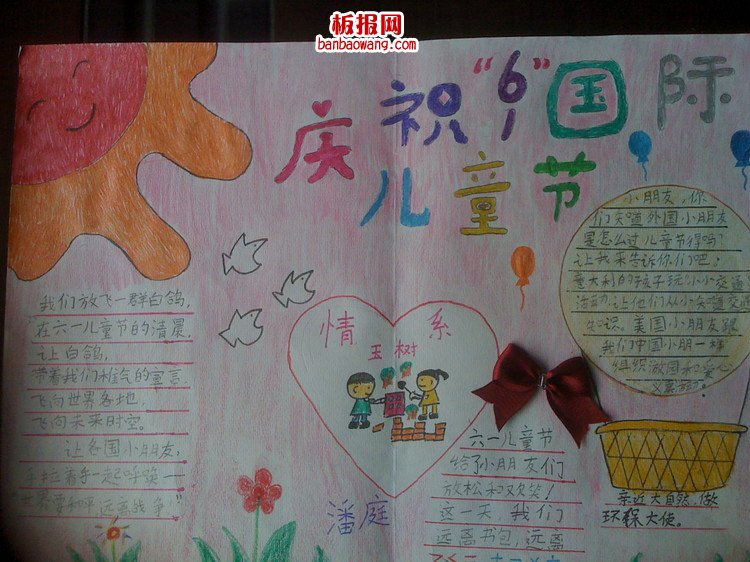 板报网
banbaowang.com
庆祝“61”国际
儿童节
我们放飞一群白鸽,
在六一儿童节的清晨,
让白鸽,
带着我们稚气的宣言
飞向世界各地,
飞向未来时空。
让各国小朋友,
手拉着手一起呼唤——
“世界要和平远离战争!”
情系
玉树
潘庭
六一儿童节
给小朋友们
放松和欢笑!
这一天我们
远离书包,远离
小朋友,你
们知道外国小朋友
是怎么过儿童节得吗?
让我来告诉你们吧!
意大利的孩子玩小小交通
活动,让他们从小知道交通
知识。美国小朋友跟
我们中国小朋一样
组织激国和爱心
义卖活动。
亲近大自然,做
环保大使。